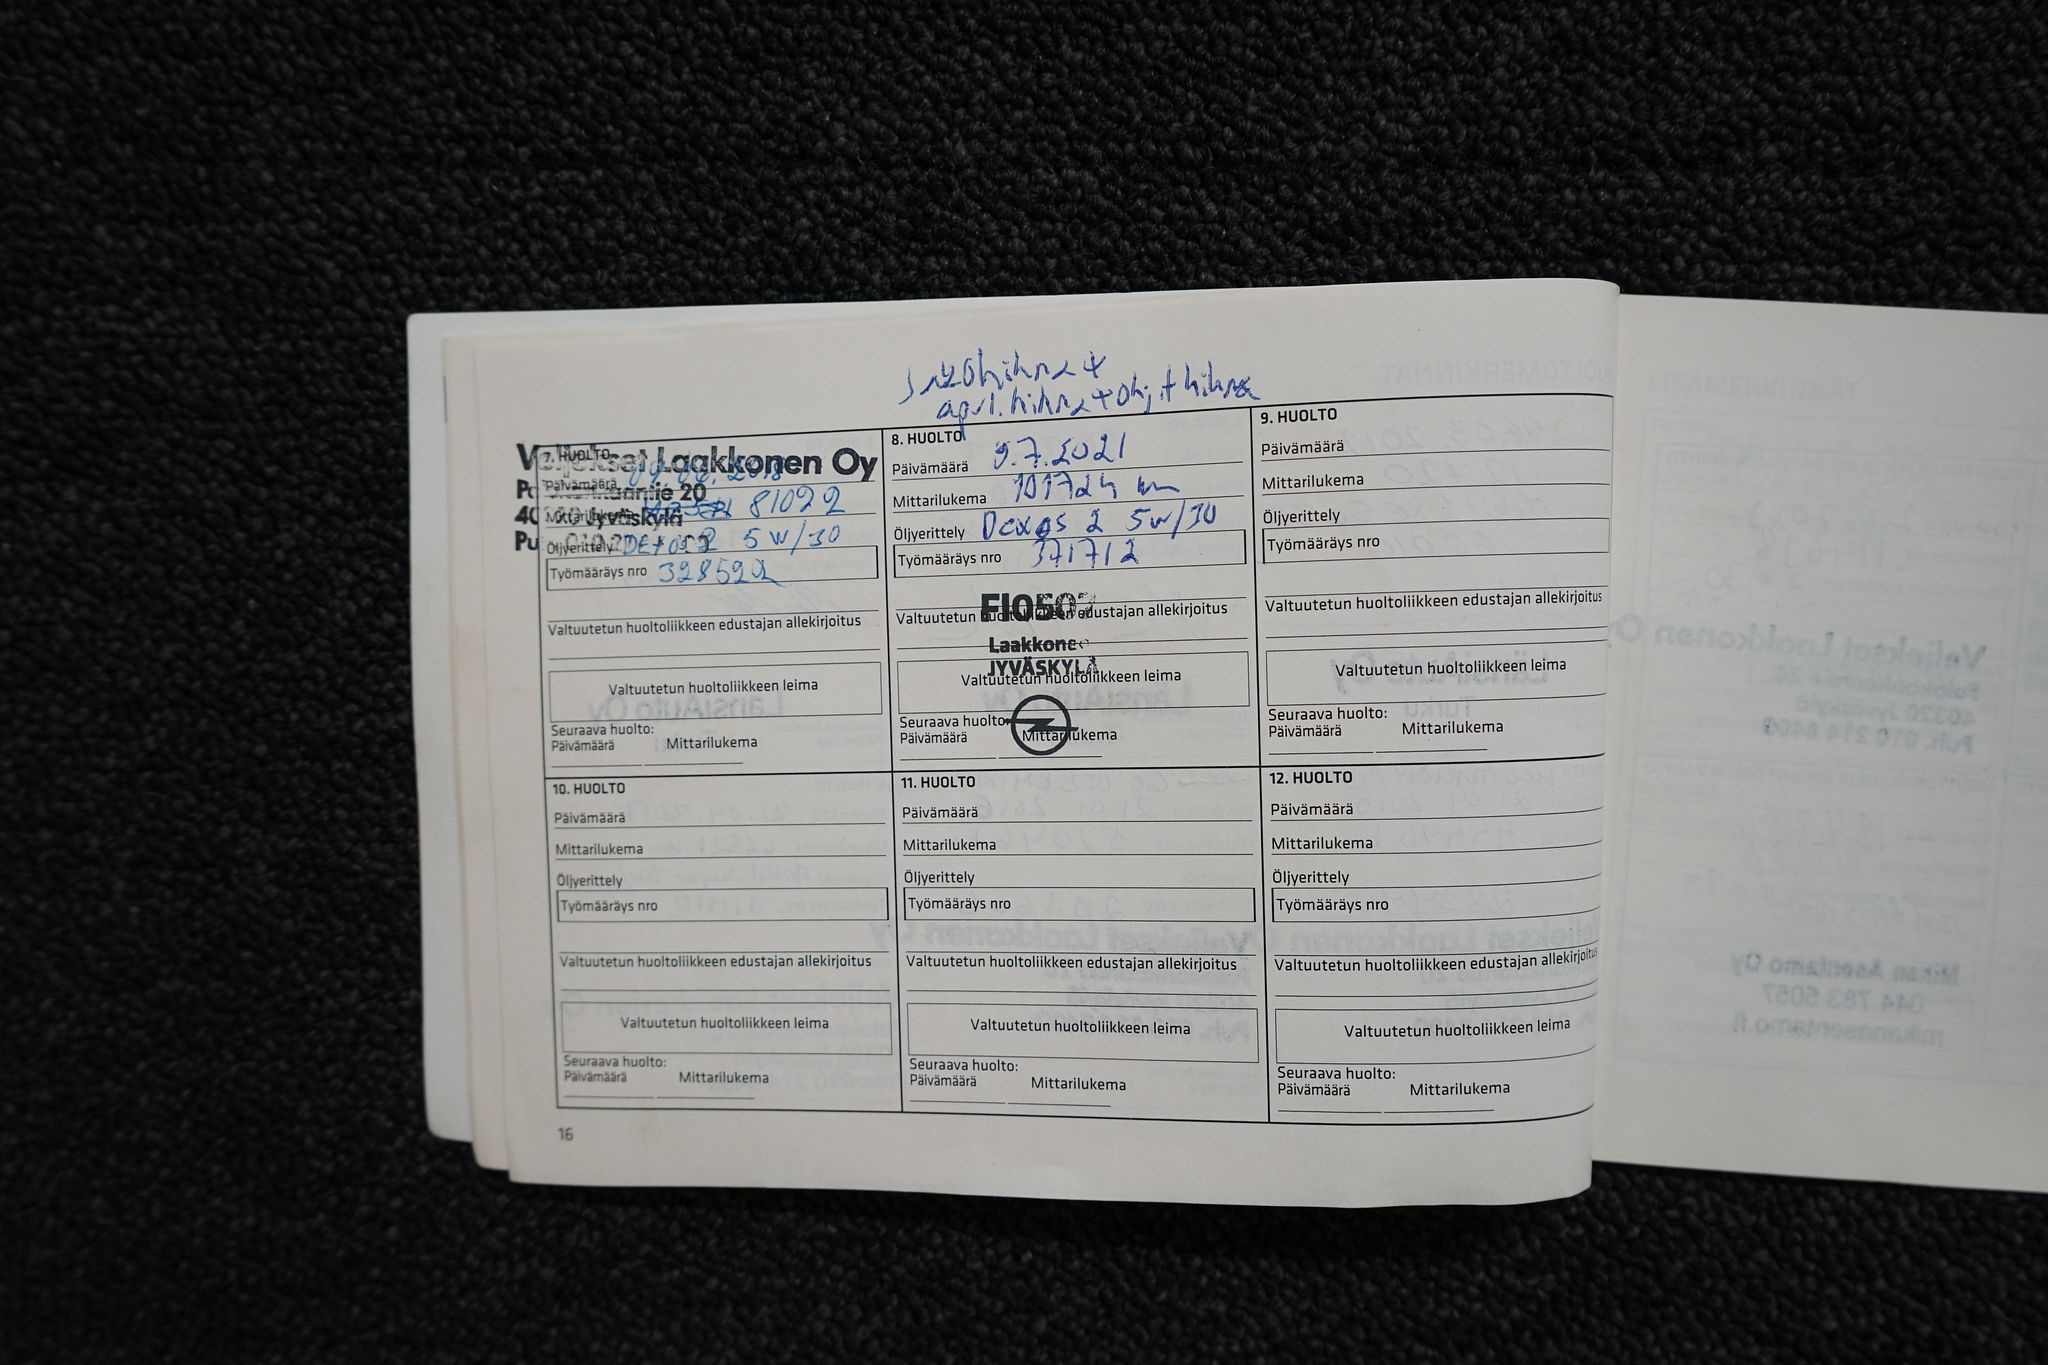 jakohihna +
apul. hihna + ohj. + hihna
Veljekset Laakkonen Oy
7. HUOLTO
Päivämäärä 2018
20
Mittarilukema 81022
Jyväskylä
Öljyerittely Dexos 2 5W/30
Työmääräys nro 328522
Valtuutetun huoltoliikkeen edustajan allekirjoitus
Valtuutetun huoltoliikkeen leima
Seuraava huolto:
Päivämäärä Mittarilukema
8. HUOLTO
Päivämäärä 9.7.2021
Mittarilukema 101724 km
Öljyerittely Dexos 2 5w/30
Työmääräys nro 371712
FI0503
Valtuutetun huoltoliikkeen edustajan allekirjoitus
Laakkonen
JYVÄSKYLÄ
Valtuutetun huoltoliikkeen leima
Seuraava huolto:
Päivämäärä Mittarilukema
9. HUOLTO
Päivämäärä
Mittarilukema
Öljyerittely
Työmääräys nro
Valtuutetun huoltoliikkeen edustajan allekirjoitus
Valtuutetun huoltoliikkeen leima
Seuraava huolto:
Päivämäärä Mittarilukema
10. HUOLTO
Päivämäärä
Mittarilukema
Öljyerittely
Työmääräys nro
Valtuutetun huoltoliikkeen edustajan allekirjoitus
Valtuutetun huoltoliikkeen leima
Seuraava huolto:
Päivämäärä Mittarilukema
11. HUOLTO
Päivämäärä
Mittarilukema
Öljyerittely
Työmääräys nro
Valtuutetun huoltoliikkeen edustajan allekirjoitus
Valtuutetun huoltoliikkeen leima
Seuraava huolto:
Päivämäärä Mittarilukema
12. HUOLTO
Päivämäärä
Mittarilukema
Öljyerittely
Työmääräys nro
Valtuutetun huoltoliikkeen edustajan allekirjoitus
Valtuutetun huoltoliikkeen leima
Seuraava huolto:
Päivämäärä Mittarilukema
16